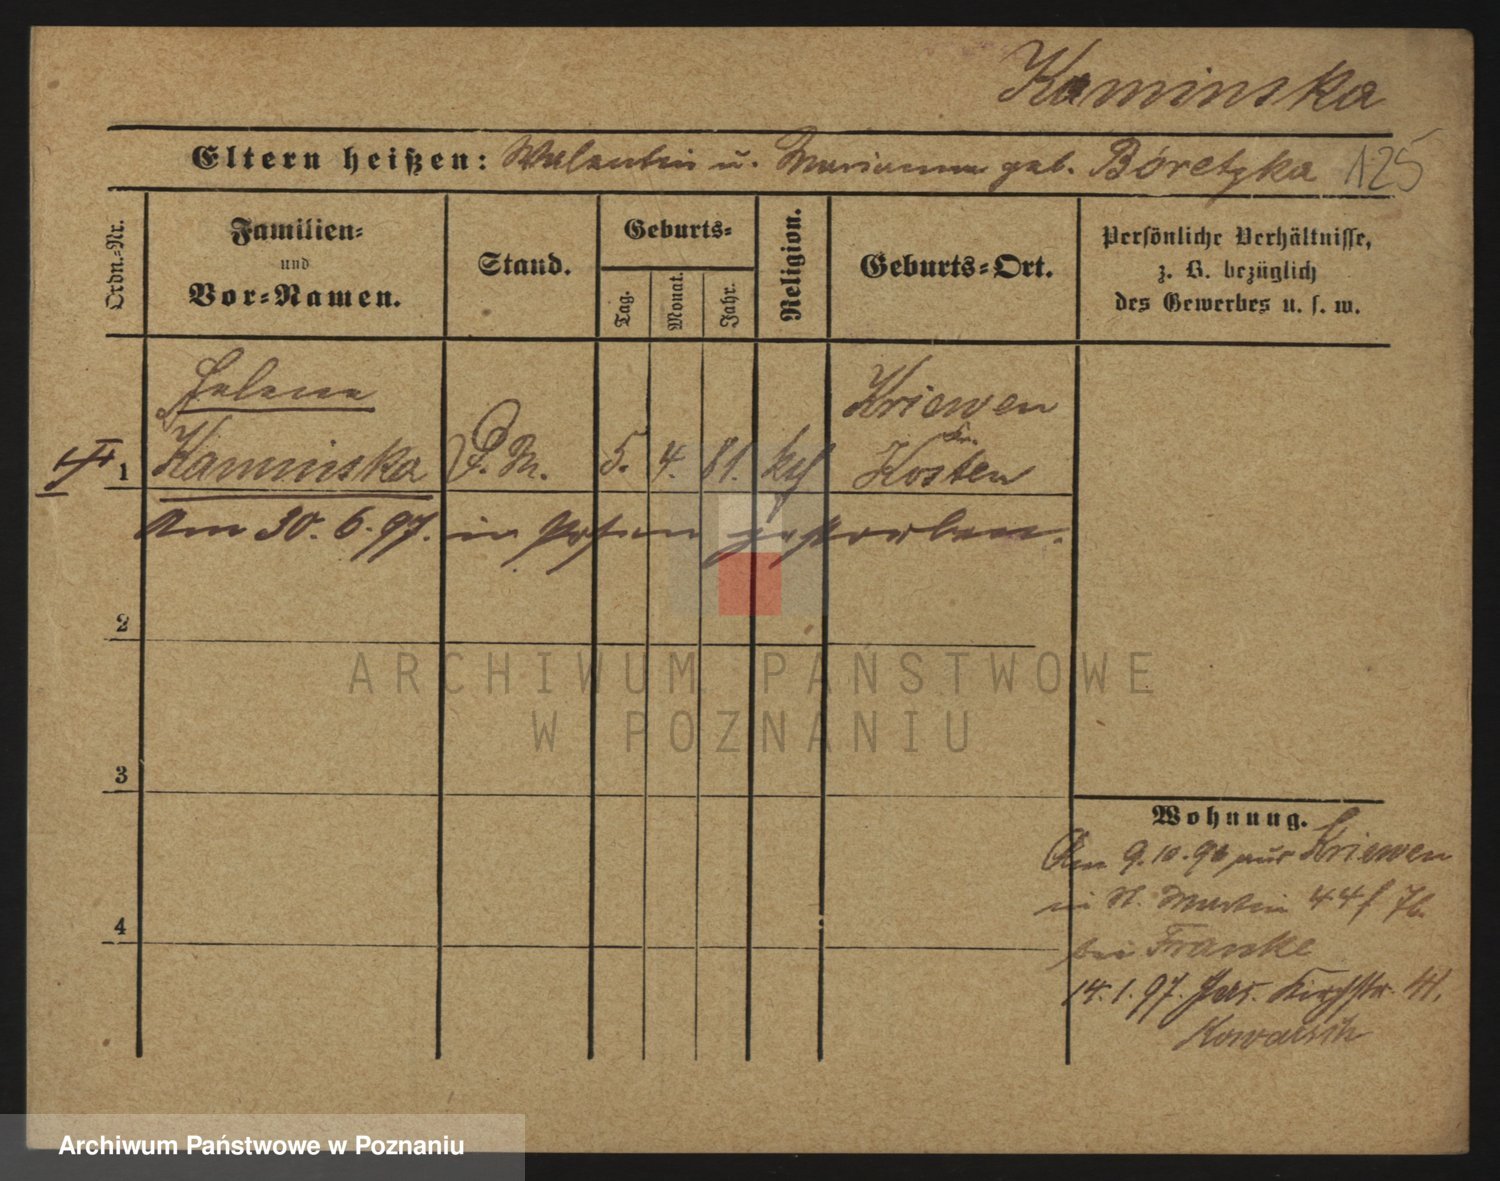 Kaminska
Eltern heißen: Valentin u. Marianna geb. Boretzka 125
Ordn.-Nr.
Familien-
und
Vor-Namen.
Stand.
Geburts-
Tag.
Monat.
Jahr.
Religion.
Geburts-Ort.
Persönliche Verhältnisse,
z. B. bezüglich
des Gewerbes u. s. w.
Helene
Kriewen
Kr.
1 Kaminska D. M. 5. 4. 81. kth Kosten
Am 30. 6. 97. in Posen gestorben.
2
3
4
Wohnung.
Am 9.10.96 aus Kriewen
in St. Martin 44
bei Franke
14.1.97. Kirchstr.
ARCHIWUM PAŃSTWOWE
W POZNANIU
Archiwum Państwowe w Poznaniu